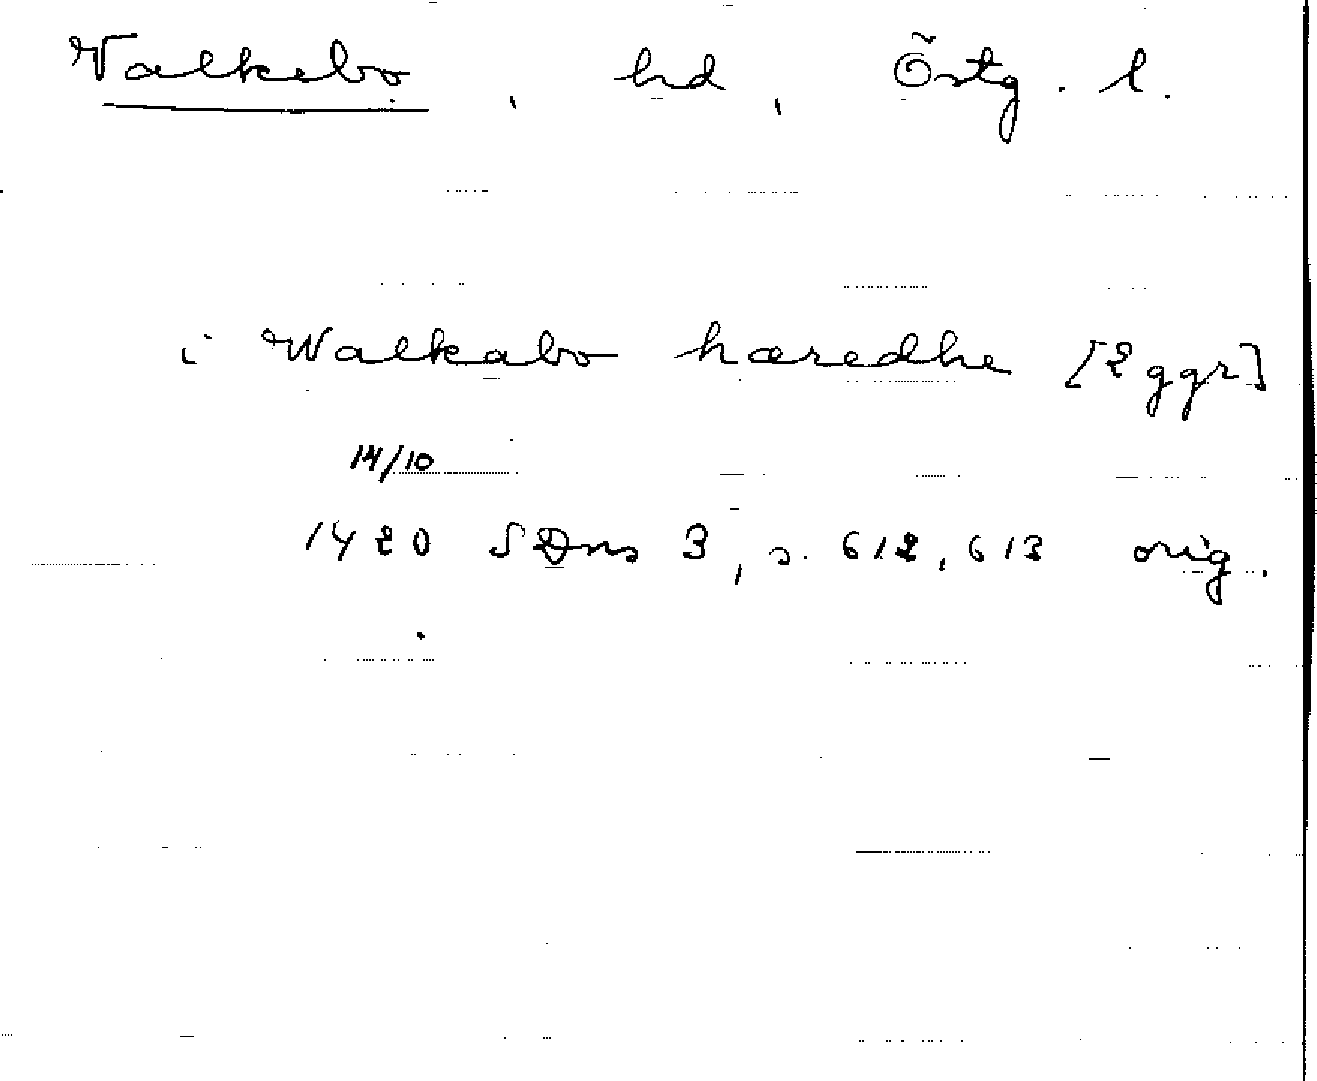 Valkebo, hd, Östg. l.
i Walkabo hæredhe [2 ggr]
14/10
1420 SDns 3, s. 612, 613 orig.